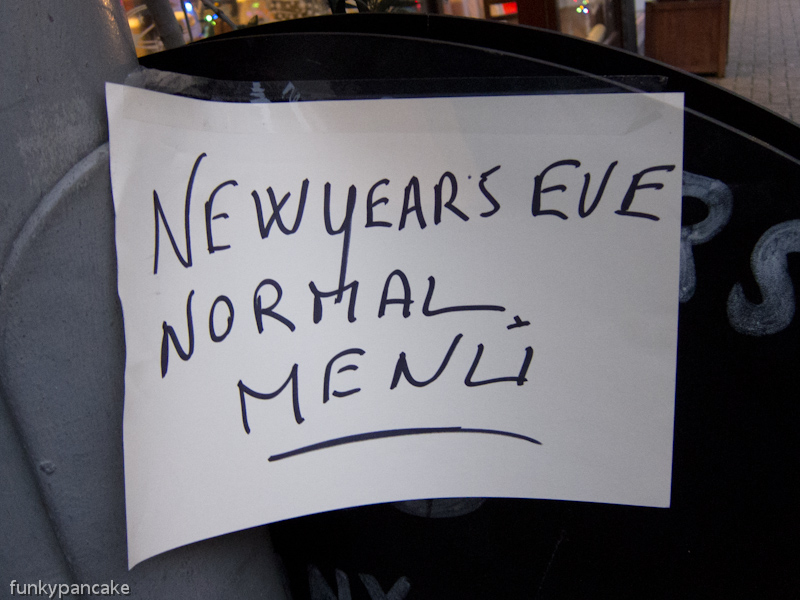 NEW YEAR'S EVE
NORMAL
MENÙ
funkypancake